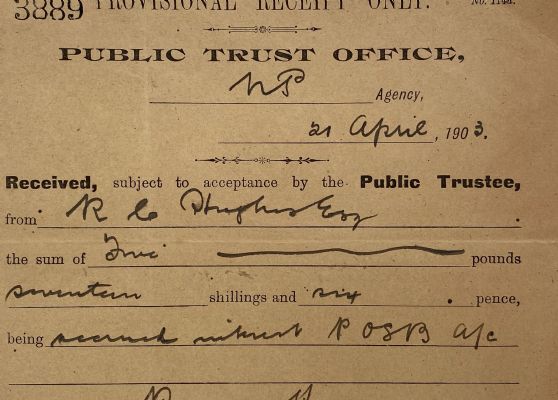 3889 PROVISIONAL RECEIPT ONLY. No.
PUBLIC TRUST OFFICE,
N P Agency,
21 April, 1903.
Received, subject to acceptance by the Public Trustee,
from R C Hughes Esq.
the sum of pounds
seventeen shillings and six pence,
being accrued interest P O S B a/c